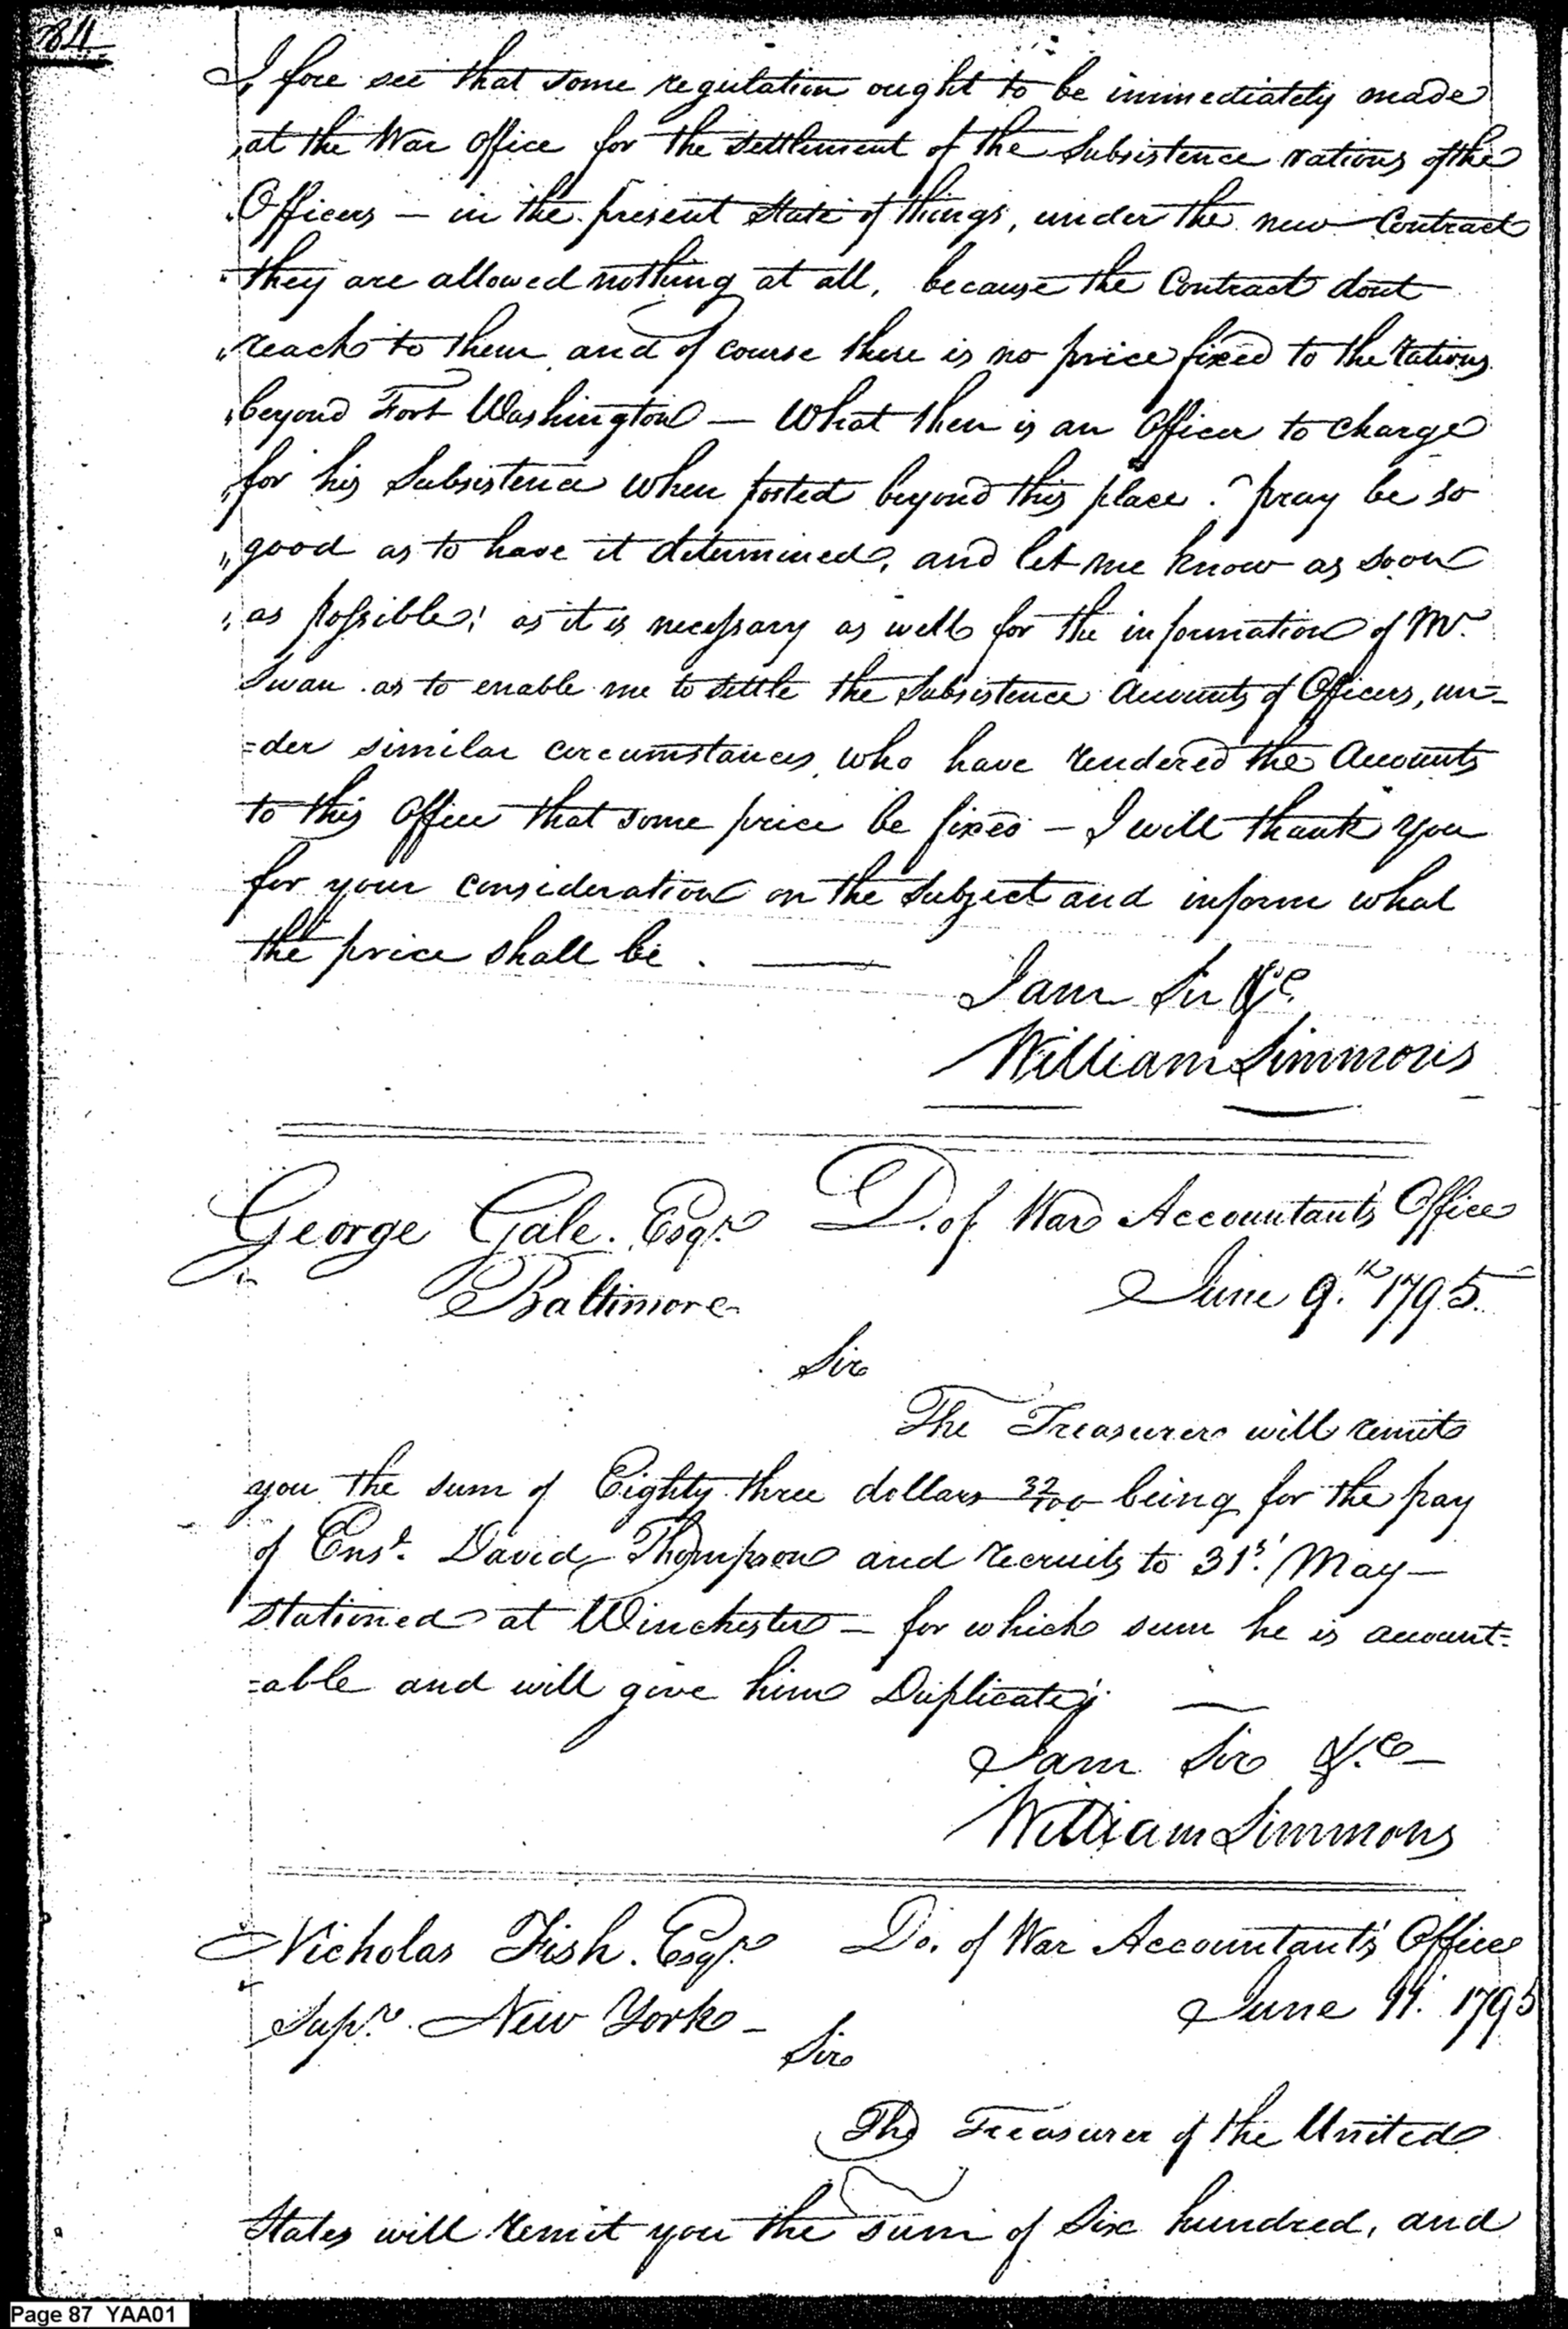 84
I fore see that some regulation ought to be immediately made
" at the War Office for the settlement of the Subsistence rations of the
" Officers — in the present state of things, under the new Contract
" they are allowed nothing at all, because the Contract dont
" reach to them and of course there is no price fixed to the rations
" beyond Fort Washington — What then is an Officer to charge
" for his Subsistence when posted beyond this place. ? pray be so
" good as to have it determined, and let me know as soon
" as possible; as it is necessary as well for the information of Mr.
Swan as to enable me to settle the Subsistence Accounts of Officers, un=
=der similar circumstances who have rendered the Accounts
to this Office that some price be fixed — I will thank you
for your consideration on the Subject and inform what
the price shall be. —
I am Sir &c.
William Simmons
George Gale. Esqr. D. of War Accountant's Office
Baltimore June 9.th 1795.
Sir
The Treasurer will remit
you the sum of Eighty three dollars 32/100 being for the pay
of Enst. David Thompson and recruits to 31st. May —
stationed at Winchester — for which sum he is account=
=able and will give him Duplicates. —
I am Sir &c. —
William Simmons
Nicholas Fish. Esqr. Do. of War Accountant's Office
Supr. New York — June 11. 1795
Sir
The Treasurer of the United
States will remit you the sum of Six hundred, and
Page 87 YAA01